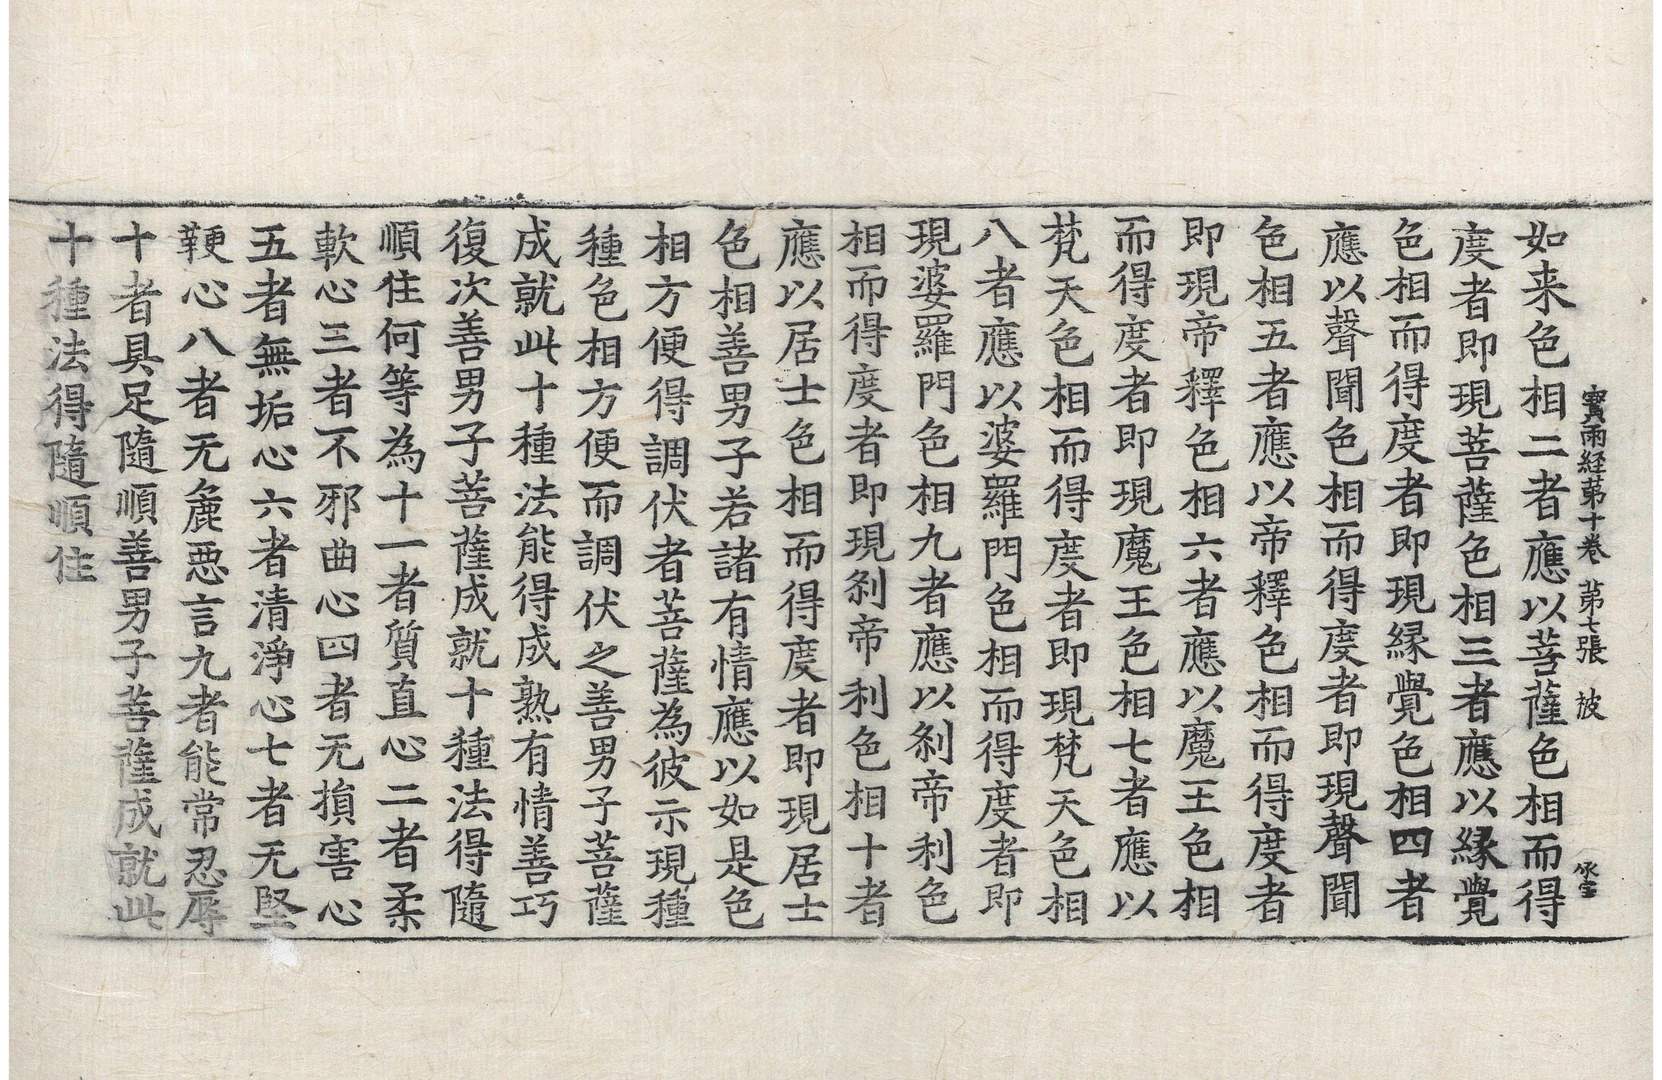 寶雨経苐十卷 苐七張 被
如来色相二者應以菩薩色相而得
度者即現菩薩色相三者應以縁覺
色相而得度者即現縁覺色相四者
應以聲聞色相而得度者即現聲聞
色相五者應以帝釋色相而得度者
即現帝釋色相六者應以魔王色相
而得度者即現魔王色相七者應以
梵天色相而得度者即現梵天色相
八者應以婆羅門色相而得度者即
現婆羅門色相九者應以刹帝利色
相而得度者即現刹帝利色相十者
應以居士色相而得度者即現居士
色相善男子若諸有情應以如是色
相方便得調伏者菩薩為彼示現種
種色相方便而調伏之善男子菩薩
成就此十種法能得成熟有情善巧
復次善男子菩薩成就十種法得隨
順住何等為十一者質直心二者柔
軟心三者不邪曲心四者无損害心
五者無垢心六者清淨心七者无堅
鞕心八者无麁悪言九者能常忍辱
十者具足隨順善男子菩薩成就此
十種法得隨順住